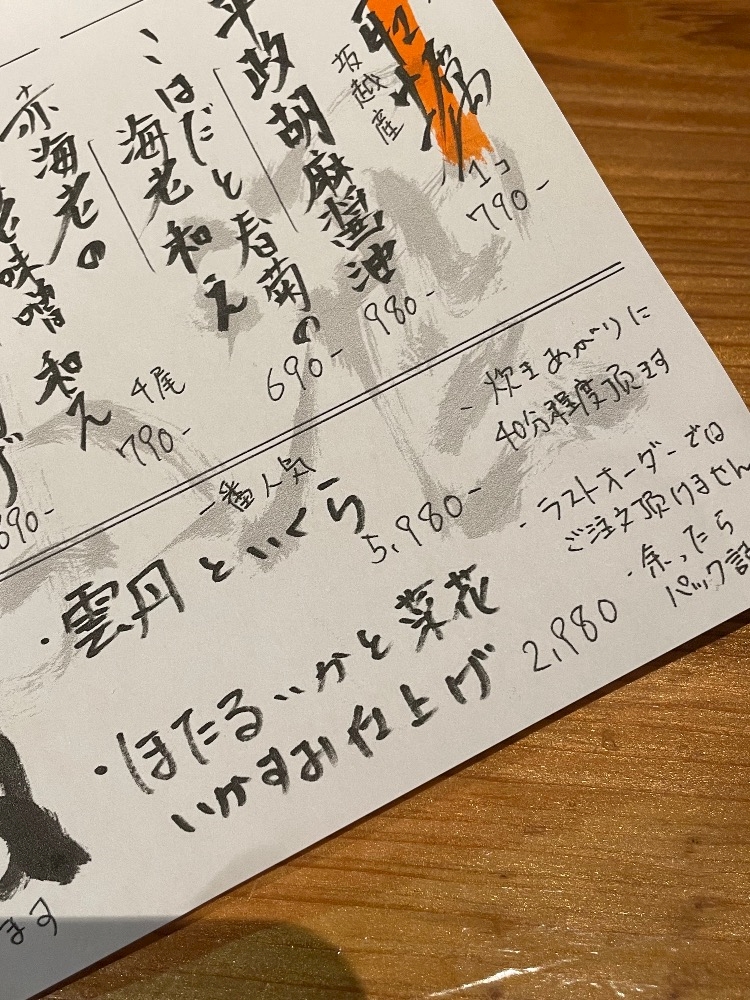 坂越産
牡蠣
1コ
790-
平政胡麻醤油
980-
こはだと春菊の
海老和え
690-
赤海老の
老味噌和え
4尾
790-
690-
一番人気
・雲丹といくら
5,980-
・ほたるいかと菜花
いかすみ仕上げ
2,980
- 炊きあがりに
40分程度頂ます
- ラストオーダーでは
ご注文頂けません
・余ったら
パック詰
ます